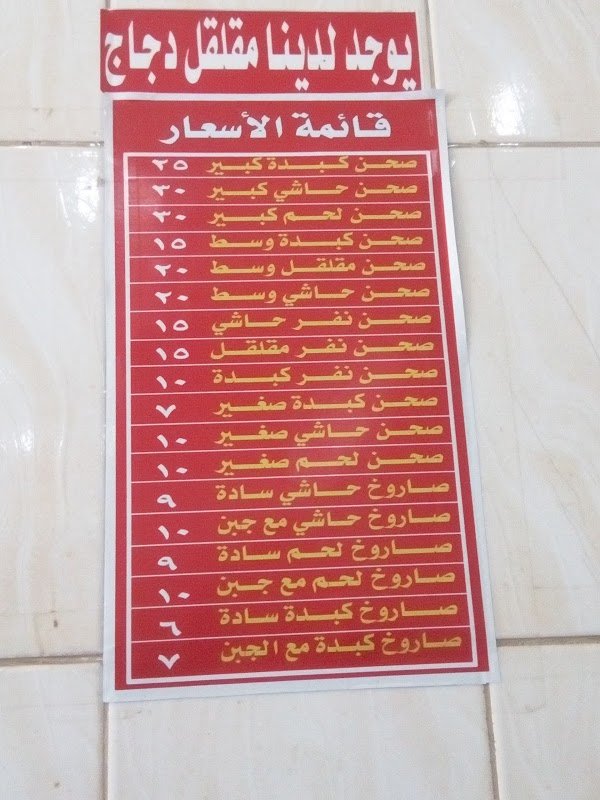 يوجد لدينا مقلقل دجاج
قائمة الأسعار
صحن كبدة كبير ٢٥
صحن حاشي كبير ٣٠
صحن لحم كبير ٣٠
صحن كبدة وسط ١٥
صحن مقلقل وسط ٢٠
صحن حاشي وسط ٢٠
صحن نفر حاشي ١٥
صحن نفر مقلقل ١٥
صحن نفر كبدة ١٠
صحن كبدة صغير ٧
صحن حاشي صغير ١٠
صحن لحم صغير ١٠
صاروخ حاشي سادة ٩
صاروخ حاشي مع جبن ١٠
صاروخ لحم سادة ٩
صاروخ لحم مع جبن ١٠
صاروخ كبدة سادة ٦
صاروخ كبدة مع الجبن ٧